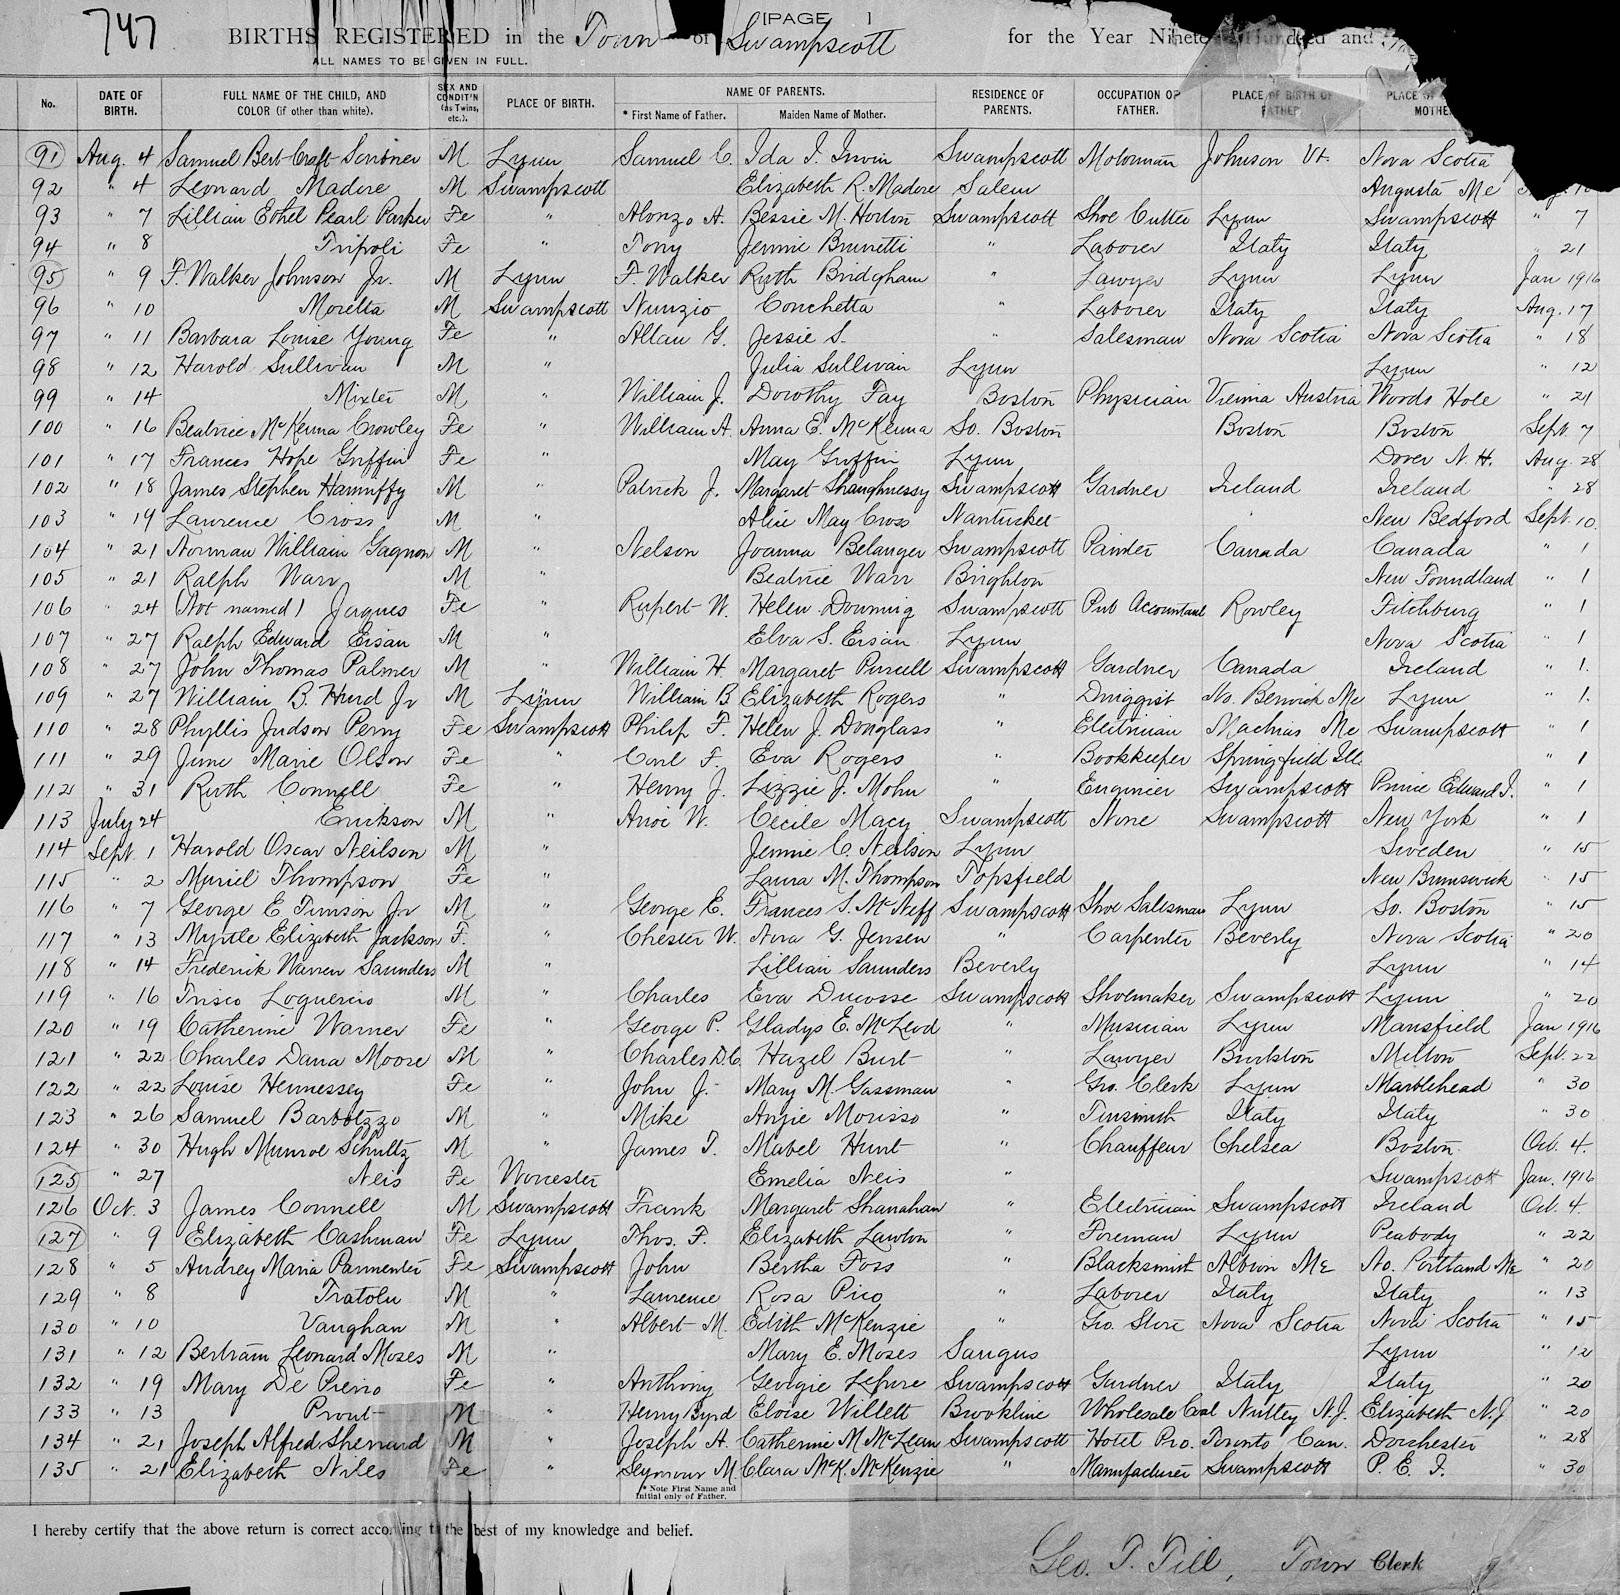 747
[PAGE 1
BIRTHS REGISTERED in the Town of Swampscott for the Year Ninete Hundred and
ALL NAMES TO BE GIVEN IN FULL.
No. DATE OF BIRTH. FULL NAME OF THE CHILD, AND COLOR (if other than white). SEX AND CONDIT'N (as Twins, etc.). PLACE OF BIRTH. NAME OF PARENTS. * First Name of Father. Maiden Name of Mother. RESIDENCE OF PARENTS. OCCUPATION OF FATHER. PLACE OF BIRTH OF FATHER. PLACE OF MOTHE
91 Aug. 4 Samuel Bert Craft Scribner M Lynn Samuel C. Ida I. Irwin Swampscott Motorman Johnson Vt. Nova Scotia
92 " 4 Leonard Madore M Swampscott Elizabeth R. Madore Salem Augusta Me
93 " 7 Lillian Ethel Pearl Parker Fe " Alonzo A. Bessie M. Horton Swampscott Shoe Cutter Lynn Swampscott " 7
94 " 8 Tripoli Fe " Tony Jennie Brunetti " Laborer Italy Italy " 21
95 " 9 F. Walker Johnson Jr. M Lynn F. Walker Ruth Bridgham " Lawyer Lynn Lynn Jan 1916
96 " 10 Moretta M Swampscott Nunzio Conchetta " Laborer Italy Italy Aug. 17
97 " 11 Barbara Louise Young Fe " Allan G. Jessie S. " Salesman Nova Scotia Nova Scotia " 18
98 " 12 Harold Sullivan M " Julia Sullivan Lynn Lynn " 12
99 " 14 Mixter M " William J. Dorothy Fay Boston Physician Vienna Austria Woods Hole " 21
100 " 16 Beatrice McKenna Crowley Fe " William A. Anna E. McKenna So. Boston Boston Boston Sept. 7
101 " 17 Frances Hope Griffin Fe " May Griffin Lynn Dover N.H. Aug. 28
102 " 18 James Stephen Hanniffy M " Patrick J. Margaret Shaughnessy Swampscott Gardner Ireland Ireland " 28
103 " 19 Laurence Cross M " Alice May Cross Nantucket New Bedford Sept. 10
104 " 21 Norman William Gagnon M " Nelson Joanna Belanger Swampscott Painter Canada Canada " 1
105 " 21 Ralph Warr M " Beatrice Warr Brighton New Foundland " 1
106 " 24 (Not named) Jaques Fe " Rupert W. Helen Downing Swampscott Pub Accountant Rowley Fitchburg " 1
107 " 27 Ralph Edward Eisan M " Elva S. Eisan Lynn Nova Scotia " 1
108 " 27 John Thomas Palmer M " William H. Margaret Purcell Swampscott Gardner Canada Ireland " 1.
109 " 27 William B. Hurd Jr M Lynn William B. Elizabeth Rogers " Druggist No. Berwick Me Lynn " 1.
110 " 28 Phyllis Judson Perry Fe Swampscott Philip F. Helen J. Douglass " Electrician Machias Me Swampscott " 1
111 " 29 June Marie Olson Fe " Carl F. Eva Rogers " Bookkeeper Springfield Ill. " 1
112 " 31 Ruth Connell Fe " Henry J. Lizzie J. Mohn " Engineer Swampscott Prince Edward I. " 1
113 July 24 Erickson M " W. Cecile Macy Swampscott None Swampscott New York " 1
114 Sept. 1 Harold Oscar Neilson M " Jennie C. Neilson Lynn Sweden " 15
115 " 2 Muriel Thompson Fe " Laura M. Thompson Topsfield New Brunswick " 15
116 " 7 George E Timson Jr M " George E. Frances S. McNeff Swampscott Shoe Salesman Lynn So. Boston " 15
117 " 13 Myrtle Elizabeth Jackson F. " Chester W. Nora G. Jensen " Carpenter Beverly Nova Scotia " 20
118 " 14 Frederik Warren Saunders M " Lillian Saunders Beverly Lynn " 14
119 " 16 Trisco Loquercio M " Charles Eva Ducosse Swampscott Shoemaker Swampscott Lynn " 20
120 " 19 Catherine Warner Fe " George P. Gladys E. McLeod " Musician Lynn Mansfield Jan 1916
121 " 22 Charles Dana Moore M " Charles D.C. Hazel Burt " Lawyer Burkton Milton Sept. 22
122 " 22 Louise Hennessey Fe " John J. Mary M. Gassman " Gro. Clerk Lynn Marblehead " 30
123 " 26 Samuel Barbotzzo M " Mike Angie Morisso " Tinsmith Italy Italy " 30
124 " 30 Hugh Munroe Schultz M " James T. Mabel Hunt " Chauffeur Chelsea Boston Oct. 4.
125 " 27 Neis Fe Worcester Emelia Neis " Swampscott Jan. 1916
126 Oct. 3 James Connell M Swampscott Frank Margaret Shanahan " Electrician Swampscott Ireland Oct. 4
127 " 9 Elizabeth Cashman Fe Lynn Thos. F. Elizabeth Lawton " Foreman Lynn Peabody " 22
128 " 5 Audrey Maria Parmenter Fe Swampscott John Bertha Foss " Blacksmith Albion Me No. Portland Me " 20
129 " 8 Tratolu M " Laurence Rosa Pico " Laborer Italy Italy " 13
130 " 10 Vaughan M " Albert M. Edith McKenzie " Gro. Store Nova Scotia Nova Scotia " 15
131 " 12 Bertram Leonard Moses M " Mary E. Moses Saugus Lynn " 12
132 " 19 Mary De Pierro Fe " Anthony Georgie Lepore Swampscott Gardner Italy Italy " 20
133 " 13 Prout M " Henry Byrd Eloise Willett Brookline Wholesale Coal Nutley N.J. Elizabeth N.J " 20
134 " 21 Joseph Alfred Sherrard M " Joseph A. Catherine M McLean Swampscott Hotel Pro. Toronto Can. Dorchester " 28
135 " 21 Elizabeth Niles Fe " Seymour M. Clara McK. McKenzie " Manufacturer Swampscott P. E. I. " 30
* Note First Name and
initial only of Father.
I hereby certify that the above return is correct according to the best of my knowledge and belief.
Geo. T. Till, Town Clerk